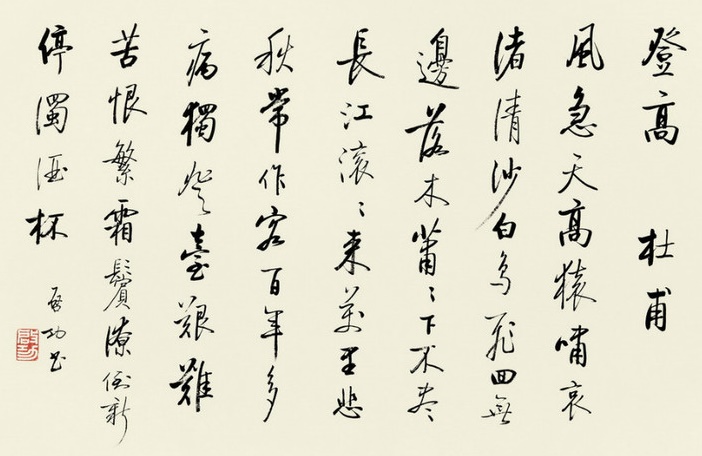 登高 杜甫
風急天高猿嘯哀
渚清沙白鳥飛回無
邊落木蕭〻下不尽
長江滚〻来萬里悲
秋常作客百年多
病獨登臺艱難
苦恨繁霜鬢潦倒新
停濁酒杯
啓功书
啓功